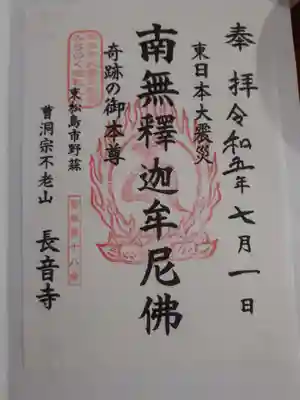 奉拝 令和五年 七月一日
東日本大震災
南無釋迦牟尼佛
奇跡の御本尊
東松島市野蒜
曹洞宗不老山
長音寺